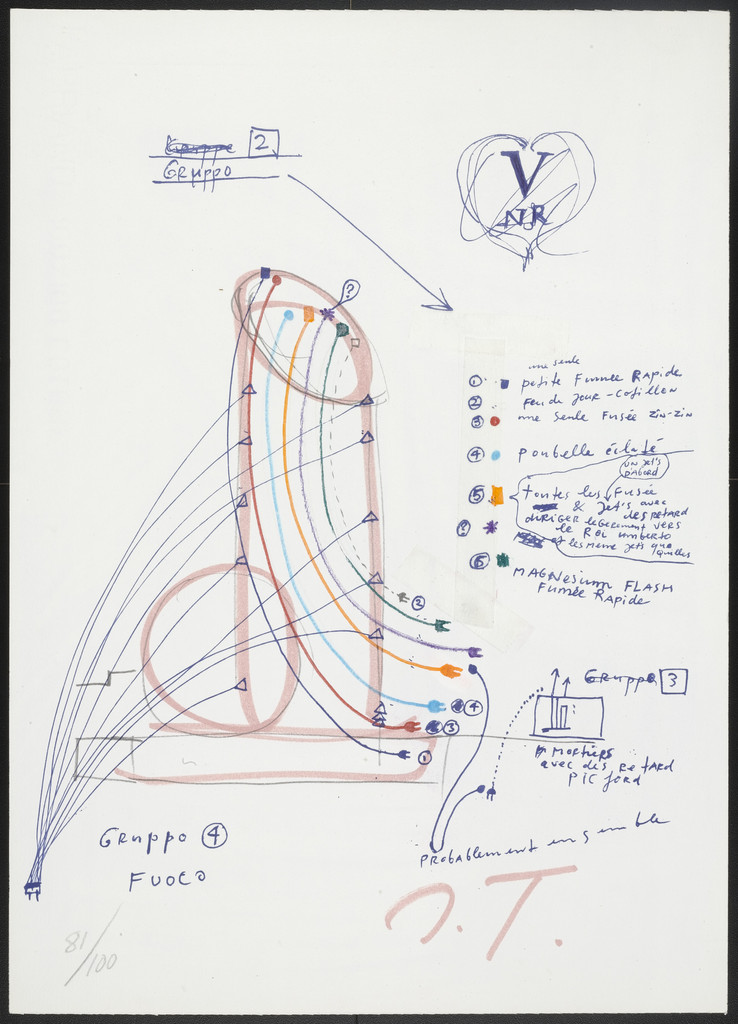 2
Gruppo
V
N.R
?
une seule
① petite Fumée RAPide
② feu de jour - cotillon
③ une seule Fusée zin-zin
④ poubelle éclaté
UN JET'S
D'ABORD
⑤ toutes les Fusée
& Jet's avec
des RETARD
diRiGER legerement vers
le ROI umberto
et les meme jets que
? 
⑥ MAGNesium FLASH
Fumée RAPide
②
④
③
①
Gruppo 3
MORTIERS
avec des RetARD
PIC ford
PRobablement ensemble
Gruppo ④
FUOCO
J.T.
81/100